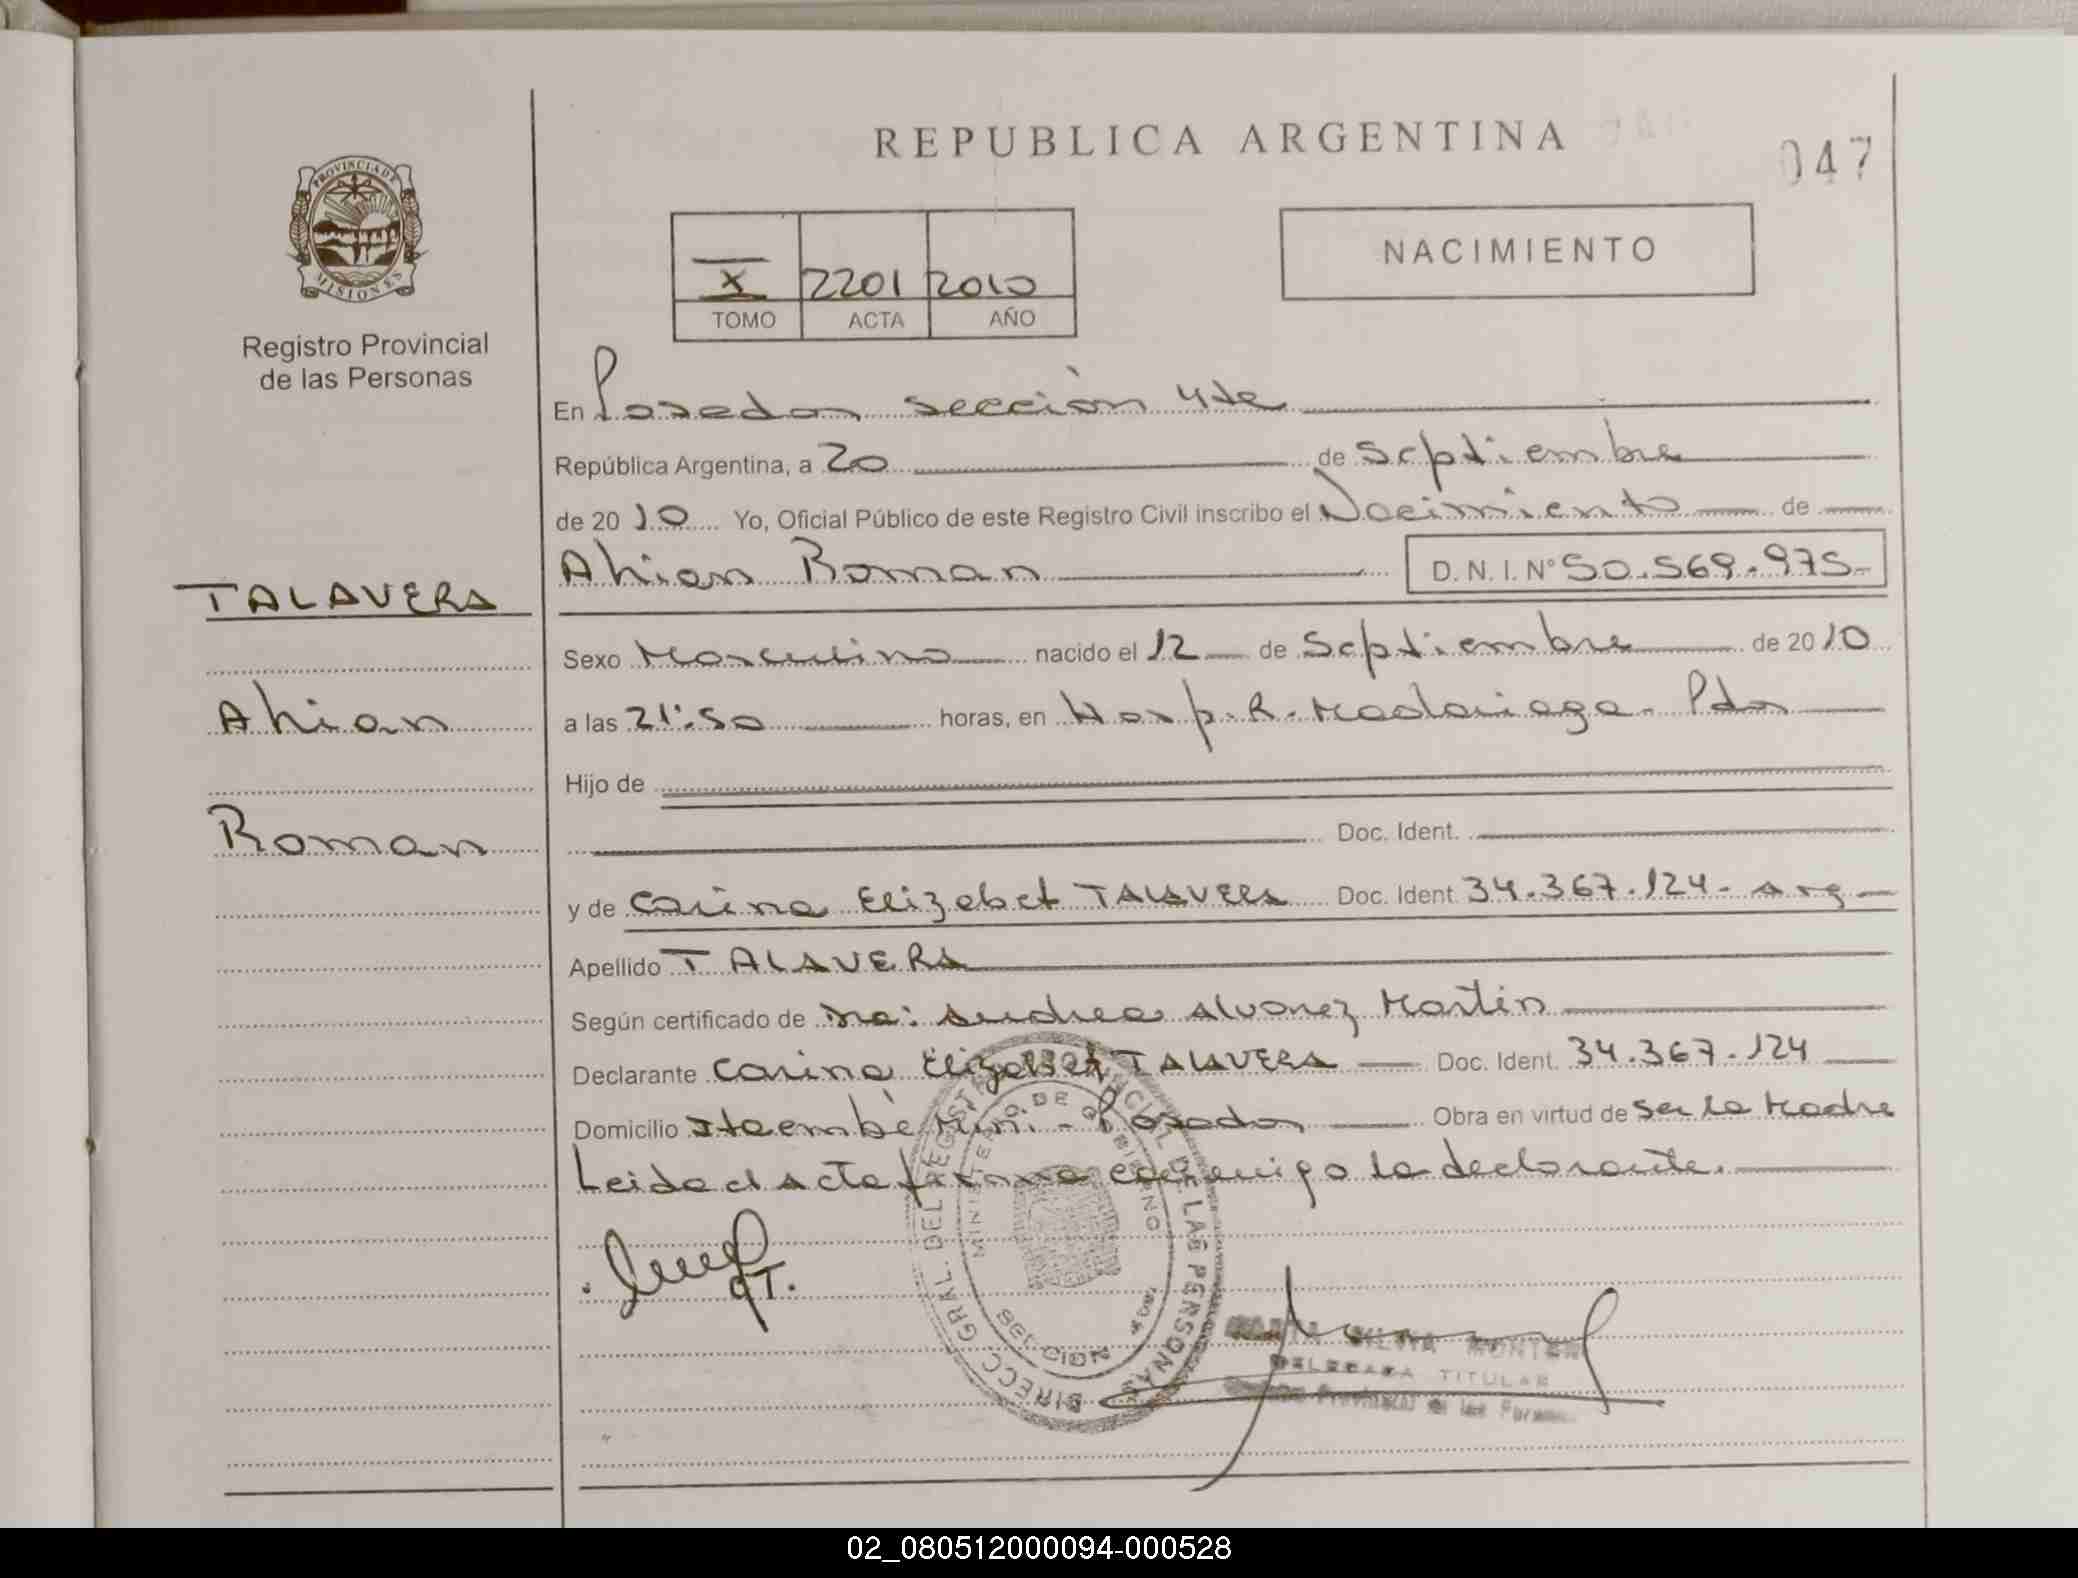 REPUBLICA ARGENTINA
047
PROVINCIA DE
MISIONES
Registro Provincial
de las Personas
X 2201 2010
TOMO ACTA AÑO
NACIMIENTO
En Posadas sección 4ta
República Argentina, a 20 de Septiembre
de 2010 Yo, Oficial Público de este Registro Civil inscribo el Nacimiento de
Ahian Roman D.N.I. Nº 50.569.975-
TALAVERA
Ahian
Roman
Sexo Masculino nacido el 12 de Septiembre de 2010
a las 21:50 horas, en Hosp. R. Madariaga - Pdas
Hijo de
Doc. Ident.
y de Carina Elizabet TALAVERA Doc. Ident. 34.367.124- Arg
Apellido TALAVERA
Según certificado de Dra: Andrea Alvarez Martin
Declarante Carina Elizabet TALAVERA Doc. Ident. 34.367.124
Domicilio Itaembé Miní. - Posadas Obra en virtud de ser la Madre
Leida el acta firma conmigo la declarante.
CT.
DIRECC. GRAL. DEL REGISTRO PROVINCIAL DE LAS PERSONAS
MINISTERIO DE GOBIERNO
MARTA SILVIA MONTERO
DELEGADA TITULAR
Provincial de las Personas
02_080512000094-000528